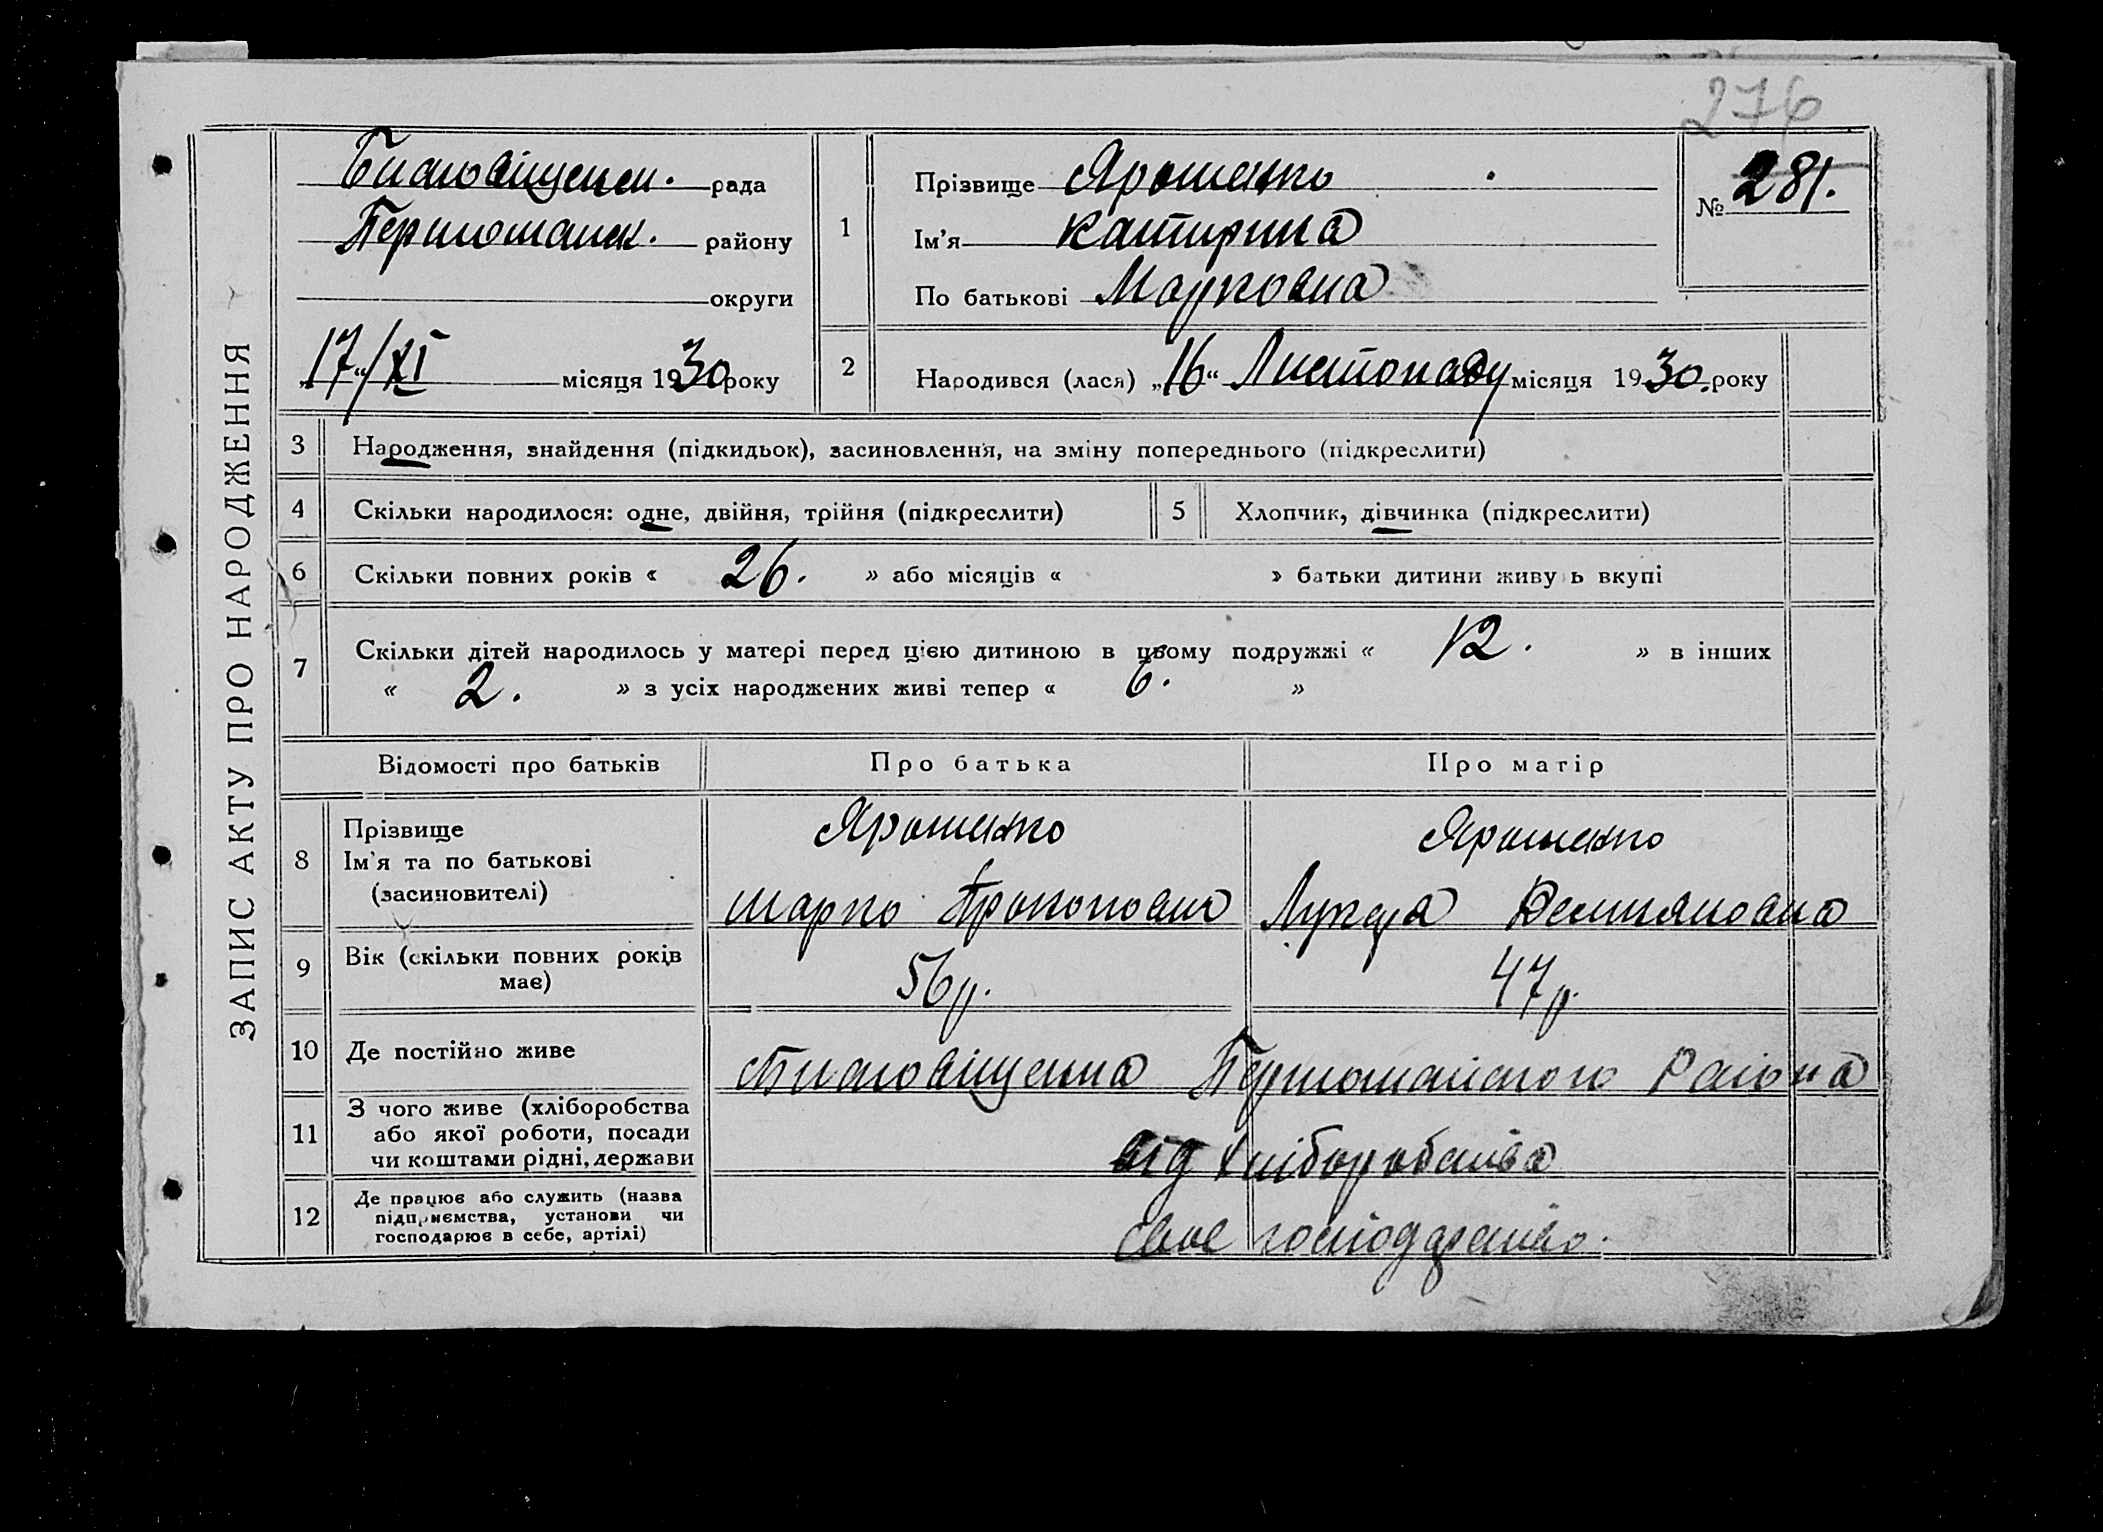 276
ЗАПИС АКТУ ПРО НАРОДЖЕННЯ
рада
Першомайск. району
округи
„17“/XI місяця 1930 року
1
Прізвище Ярошенко
Ім'я Катирина
По батькові Марковна
№ 281.
2
Народився (лася) „16“ Листопаду місяця 1930. року
3 Народження, знайдення (підкидьок), засиновлення, на зміну попереднього (підкреслити)
4 Скільки народилося: одне, двійня, трійня (підкреслити)
5 Хлопчик, дівчинка (підкреслити)
6 Скільки повних років « 26. » або місяців « » батьки дитини живу ь вкупі
7 Скільки дітей народилось у матері перед цією дитиною в цьому подружжі « 12. » в інших
« 2. » з усіх народжених живі тепер « 6. »
Відомості про батьків Про батька Про матір
8 Прізвище Ім'я та по батькові (засиновителі)
Ярошенко
Марко Прокопович
Ярошенко
Лукеря Демяновна
9 Вік (скільки повних років має)
56 р.
47 р.
10 Де постійно живе
Першомайского Района
11 З чого живе (хліборобства або якої роботи, посади чи коштами рідні, держави
від хліборобства
12 Де працює або служить (назва підприємства, установи чи господарює в себе, артілі)
своє господарство.